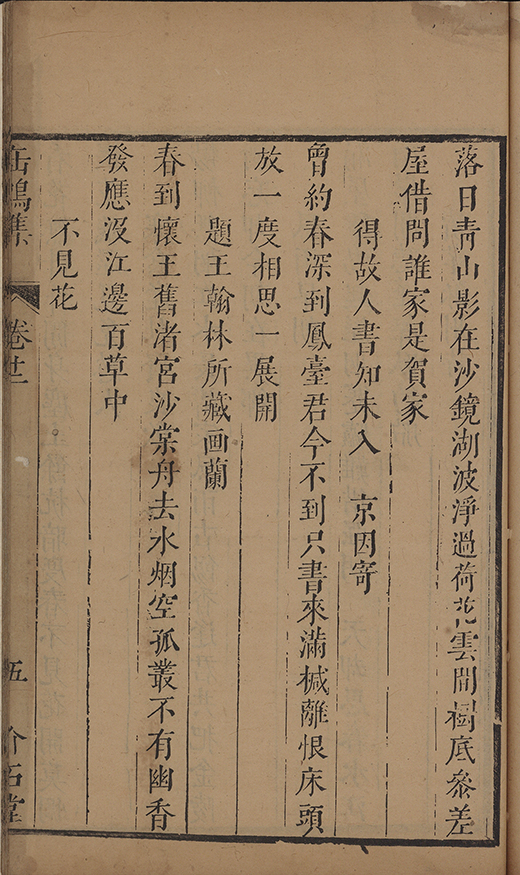 落日青山影在沙鏡湖波淨過荷花雲開楊底叅差
屋借問誰家是賀家
得故人書知未入　京因寄
曾約春深到鳳臺君今不到只書來滿椷離恨床頭
放一度相思一展開
題王翰林所藏画蘭
春到懷王舊渚宮沙棠舟去水烟空孤叢不有幽香
發應沒江邊百草中
不見花
缶鳴集　卷十二　五　介石堂